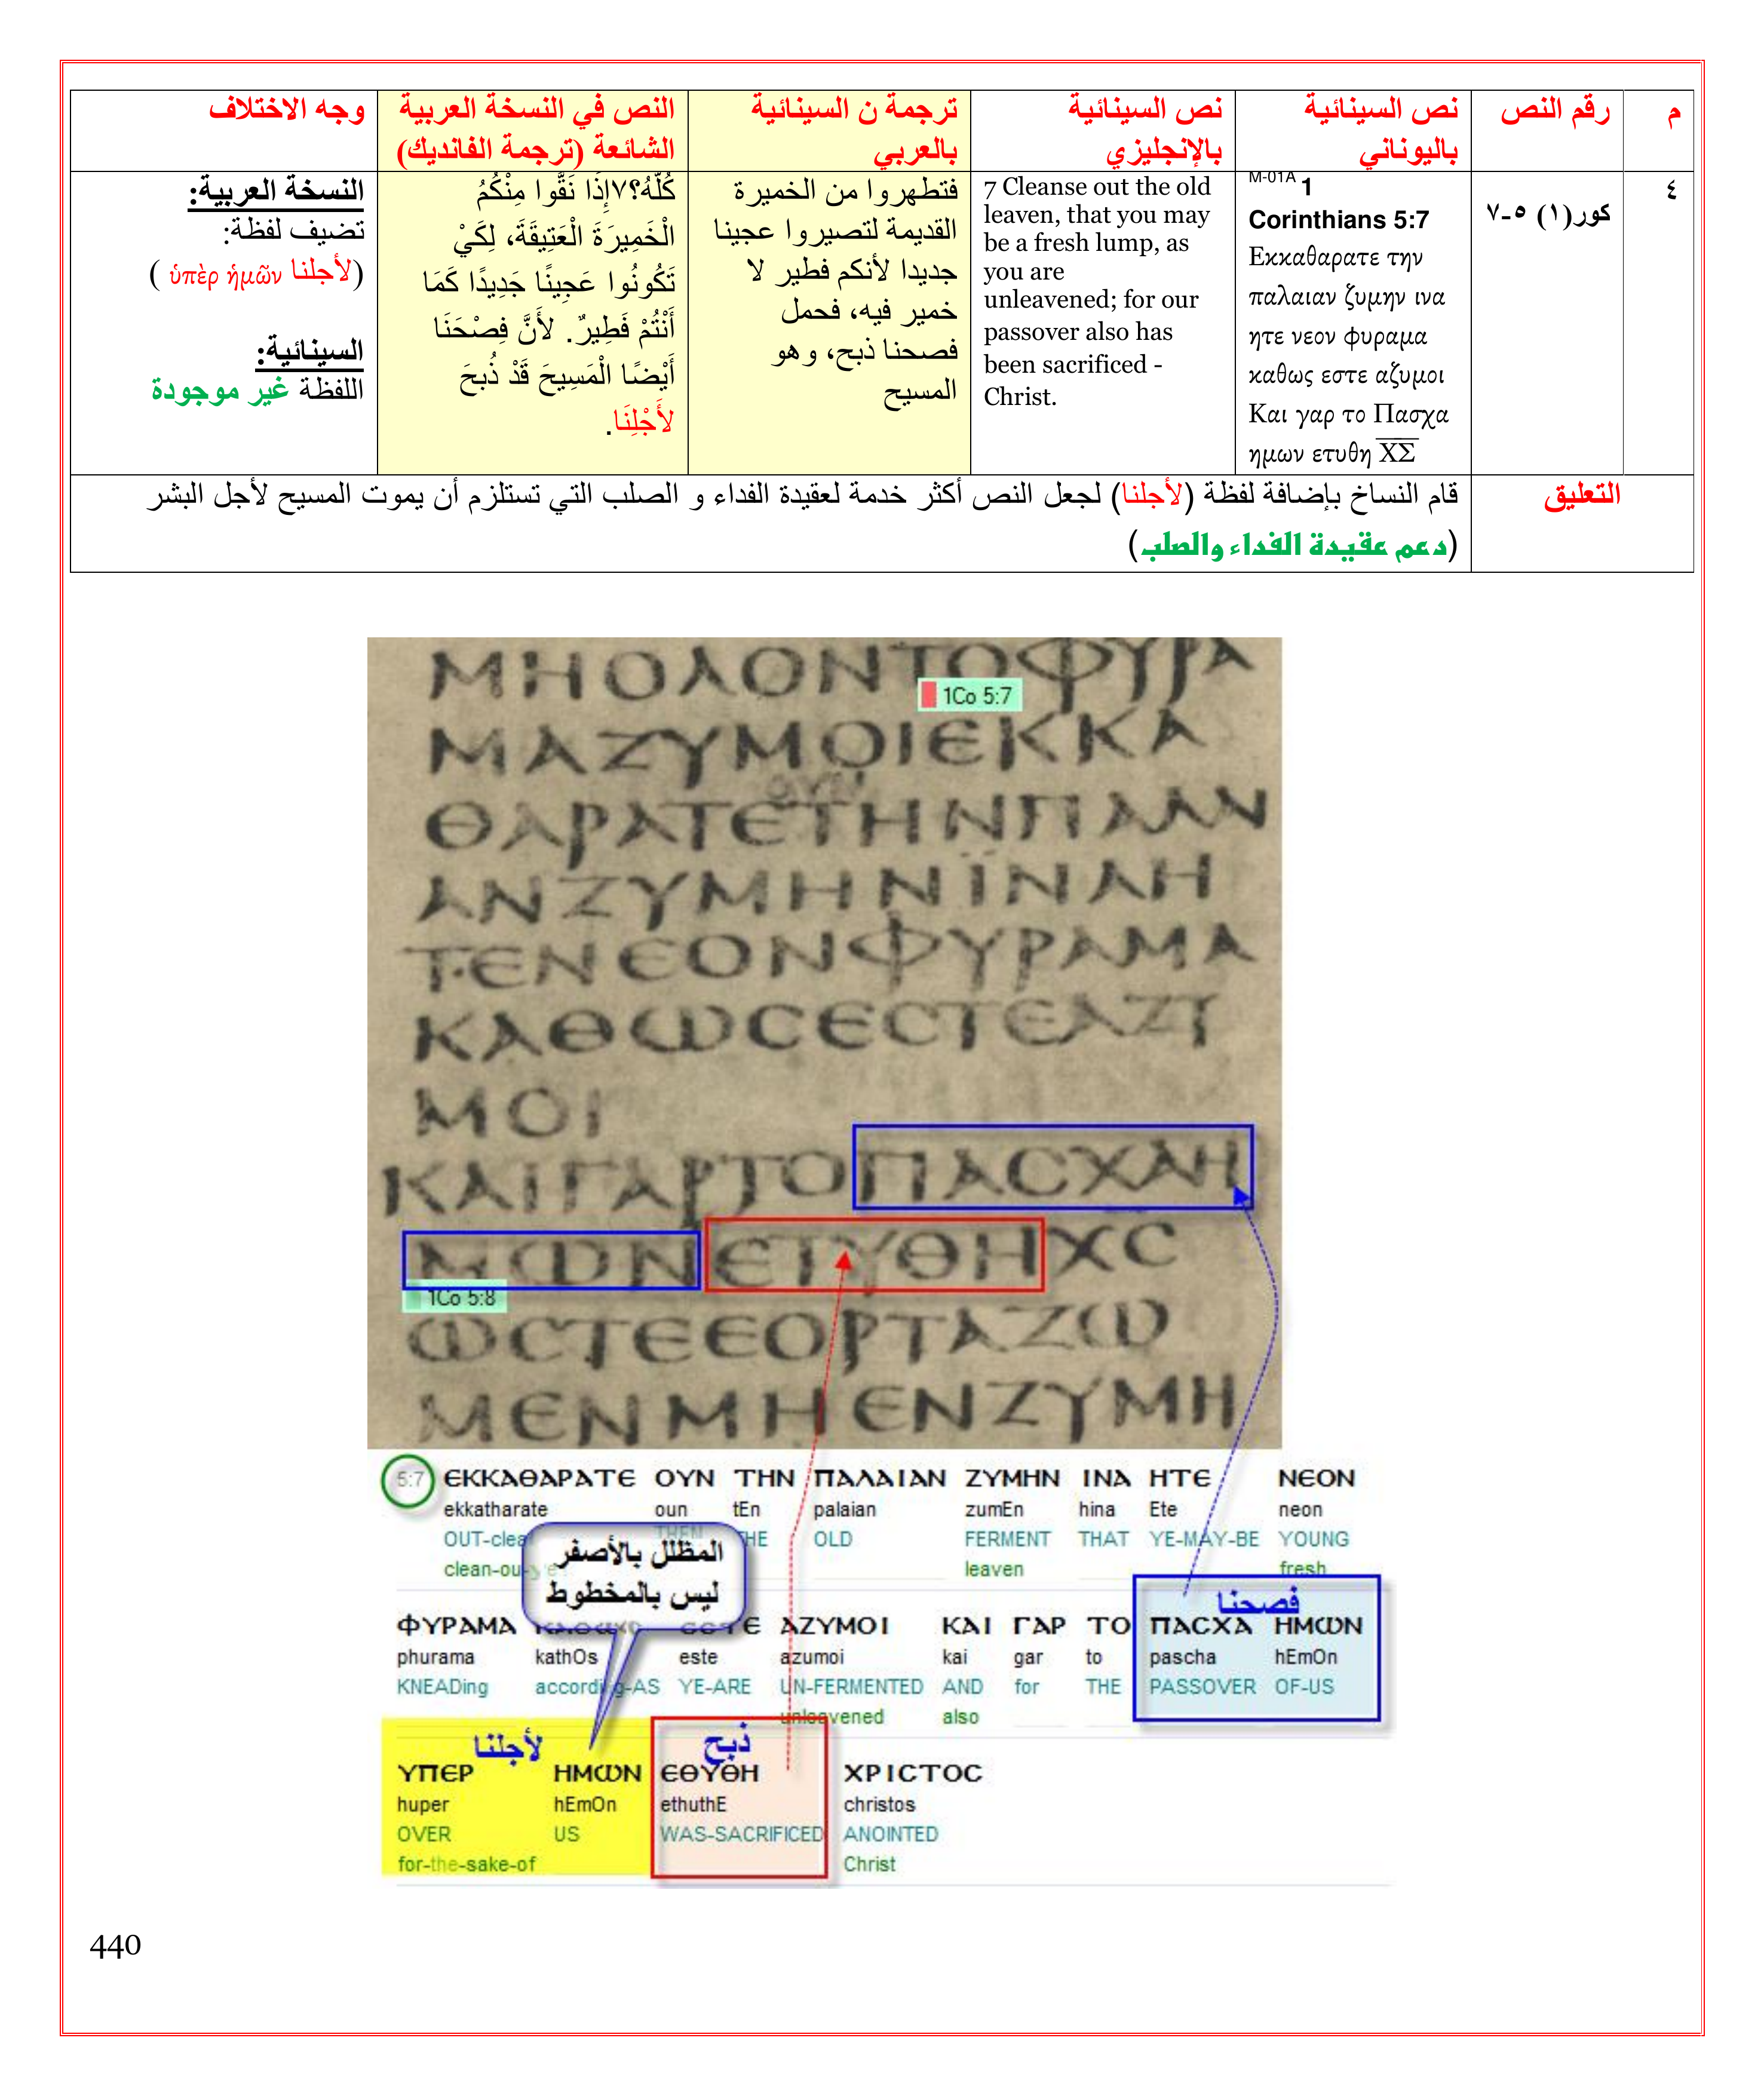 م
رقم النص
نص السينائية
باليوناني
نص السينائية
بالإنجليزي
ترجمة ن السينائية
بالعربي
النص في النسخة العربية
الشائعة (ترجمة الفانديك)
وجه الاختلاف
٤
كور(١) ٥-٧
M-01A 1
Corinthians 5:7
Εκκαθαρατε την
παλαιαν ζυμην ινα
ητε νεον φυραμα
καθως εστε αζυμοι
Και γαρ το Πασχα
ημων ετυθη Χ̅Σ̅
7 Cleanse out the old
leaven, that you may
be a fresh lump, as
you are
unleavened; for our
passover also has
been sacrificed -
Christ.
فتطهروا من الخميرة
القديمة لتصيروا عجينا
جديدا لأنكم فطير لا
خمير فيه، فحمل
فصحنا ذبح، وهو
المسيح
كُلَّهُ؟٧إِذَا نَقُّوا مِنْكُمُ
الْخَمِيرَةَ الْعَتِيقَةَ، لِكَيْ
تَكُونُوا عَجِينًا جَدِيدًا كَمَا
أَنْتُمْ فَطِيرٌ. لأَنَّ فِصْحَنَا
أَيْضًا الْمَسِيحَ قَدْ ذُبِحَ
لأَجْلِنَا.
النسخة العربية:
تضيف لفظة:
(لأجلنا ὑπὲρ ἡμῶν )
السينائية:
اللفظة غير موجودة
التعليق
قام النساخ بإضافة لفظة (لأجلنا) لجعل النص أكثر خدمة لعقيدة الفداء و الصلب التي تستلزم أن يموت المسيح لأجل البشر
(دعم عقيدة الفداء والصلب)
ΜΗΟΛΟΝΤΟΦΥΡΑ
1Co 5:7
ΜΑΖΥΜΟΙΕΚΚΑ
ΟΥΝ
ΘΑΡΑΤΕΤΗΝΠΑΛΑΙ
ΑΝΖΥΜΗΝΪΝΑΗ
ΤΕΝΕΟΝΦΥΡΑΜΑ
ΚΑΘΩϹΕϹΤΕΑΖΥ
ΜΟΙ
ΚΑΙΓΑΡΤΟΠΑϹΧΑΗ
ΜΩΝΕΤΥΘΗΧϹ
1Co 5:8
ΩϹΤΕΕΟΡΤΑΖΩ
ΜΕΝΜΗΕΝΖΥΜΗ
5:7 ΕΚΚΑΘΑΡΑΤΕ ΟΥΝ ΤΗΝ ΠΑΛΑΙΑΝ ΖΥΜΗΝ ΙΝΑ ΗΤΕ ΝΕΟΝ
ekkatharate oun tEn palaian zumEn hina Ete neon
OUT-clea THEN THE OLD FERMENT THAT YE-MAY-BE YOUNG
clean-ou-ye leaven fresh
المظلل بالأصفر
ليس بالمخطوط
فصحنا
ΦΥΡΑΜΑ ΚΑΘΩϹ ΕϹΤΕ ΑΖΥΜΟΙ ΚΑΙ ΓΑΡ ΤΟ ΠΑϹΧΑ ΗΜΩΝ
phurama kathOs este azumoi kai gar to pascha hEmOn
KNEADing according-AS YE-ARE UN-FERMENTED AND for THE PASSOVER OF-US
unleavened also
لأجلنا
ذبح
ΥΠΕΡ ΗΜΩΝ ΕΘΥΘΗ ΧΡΙϹΤΟϹ
huper hEmOn ethuthE christos
OVER US WAS-SACRIFICED ANOINTED
for-the-sake-of Christ
440